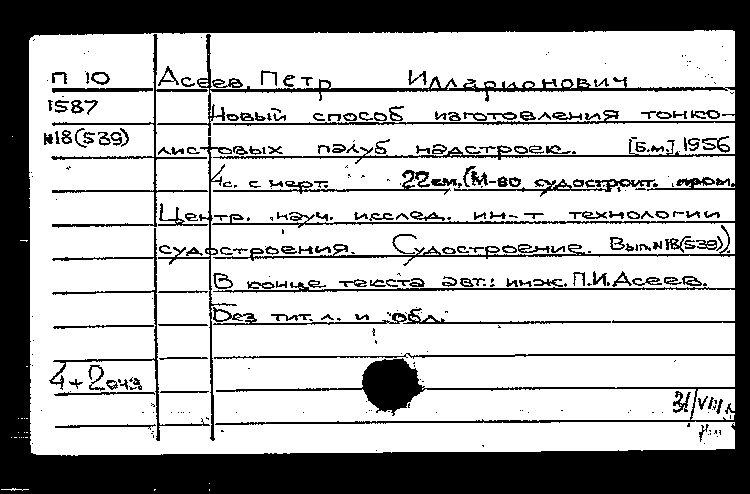 П 10 Асеев, Петр Илларионович
1587 Новый способ изготовления тонко-
№18(539) листовых палуб надстроек. [Б.м.], 1956
4с. с черт. 22см. (М-во судостроит. пром.
Центр. науч. исслед. ин-т технологии
судостроения. Судостроение. Вып.№18(539))
В конце текста авт.: инж. П.И.Асеев.
Без тит.л. и обл.
4+2
31/VIII